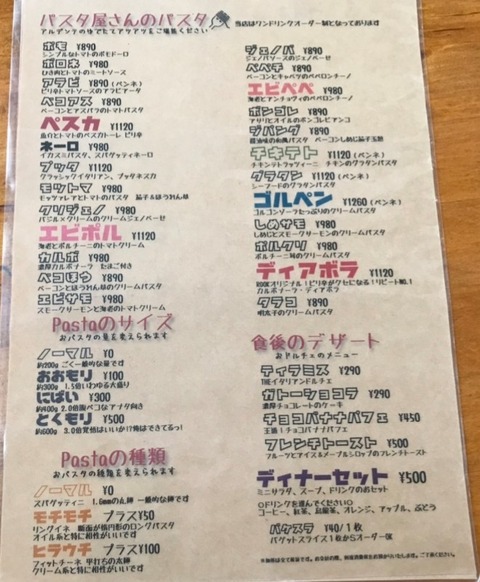 パスタ屋さんのパスタ
当店はワンドリンクオーダー制となっております
アルデンテの中でたてアツアツをご堪能ください
ポモ ¥890
シンプルなトマトのポモドーロ
ボロネ ¥980
ひき肉とトマトのミートソース
アラビ ¥890 (ペンネ)
ピリ辛トマトソースのアラビアータ
ベコアス ¥890
ベーコンとアスパラのトマトパスタ
ペスカ ¥1120
魚介とトマトのペスカトーレ ピリ辛
ネーロ ¥980
イカスミパスタ、スパゲッティネーロ
プッタ ¥1120
クラッシックイタリアン、プッタネスカ
モツトマ ¥980
モッツァレラとトマトのパスタ 茄子&ほうれん草
クリジェノ ¥980
バジル×クリームのクリームジェノベーゼ
エビポル ¥1120
海老とポルチーニのトマトクリーム
カルボ ¥980
濃厚カルボナーラ たまご付き
ベコほう ¥890
ベーコンとほうれん草のクリームパスタ
エビサモ ¥980
スモークサーモンと海老のトマトクリーム
Pastaのサイズ
おパスタの量を変えられます
ノーマル ¥0
約200g ごく一般的な量です
おおもり ¥100
約300g 1.5倍いわゆる大盛り
にばい ¥300
約400g 2.0倍腹ペコなアナタ向き
とくもり ¥500
約600g 3.0倍覚悟はいいか!?俺はできてるっ!
Pastaの種類
おパスタの種類を変えられます
ノーマル ¥0
スパゲッティニ 1.6mmの丸麺 一般的な麺です
モチモチ プラス¥50
リングイネ 断面が楕円形のロングパスタ
オイル系と特に相性がいいです
ヒラウチ プラス¥100
フィットチーネ 平打ちの太麺
クリーム系と特に相性がいいです
ジェノバ ¥890
ジェノバソースのジェノベーゼ
ペペキ ¥890
ベーコンとキャベツのペペロンチーノ
エビペペ ¥980
海老とアンチョヴィのペペロンチーノ
ボンゴレ ¥890
アサリとオイルのボンゴレビアンコ
ジパング ¥890
醤油味の和風パスタ ベーコンしめじ茄子玉葱
チキテト ¥1120 (ペンネ)
チキンテトラッツィーニ チキンのグラタンパスタ
グラタン ¥1120 (ペンネ)
シーフードのグラタンパスタ
ゴルペン ¥1260 (ペンネ)
ゴルゴンゾーラたっぷりのクリームパスタ
しめサモ ¥980
しめじとスモークサーモンのクリームパスタ
ポルクリ ¥980
ポルチーニ茸のクリームパスタ
ディアボラ ¥1120
オリジナル!ピリ辛がクセになる!リピートNO.1
カルボナーラ・ディアボラ
タラコ ¥890
明太子のクリームパスタ
食後のデザート
おドルチェのメニュー
ティラミス ¥290
THEイタリアンドルチェ
ガトーショコラ ¥290
濃厚チョコレートのケーキ
チョコバナナパフェ ¥450
王道!チョコバナナパフェ
フレンチトースト ¥500
フルーツとアイス&メープルシロップのフレンチトースト
ディナーセット ¥500
ミニサラダ、スープ、ドリンクのおセット
○ドリンクを選んでください○
コーヒー、紅茶、烏龍茶、オレンジ、アップル、ぶどう
バケスラ ¥40/1枚
バケットスライス1枚からオーダーOK